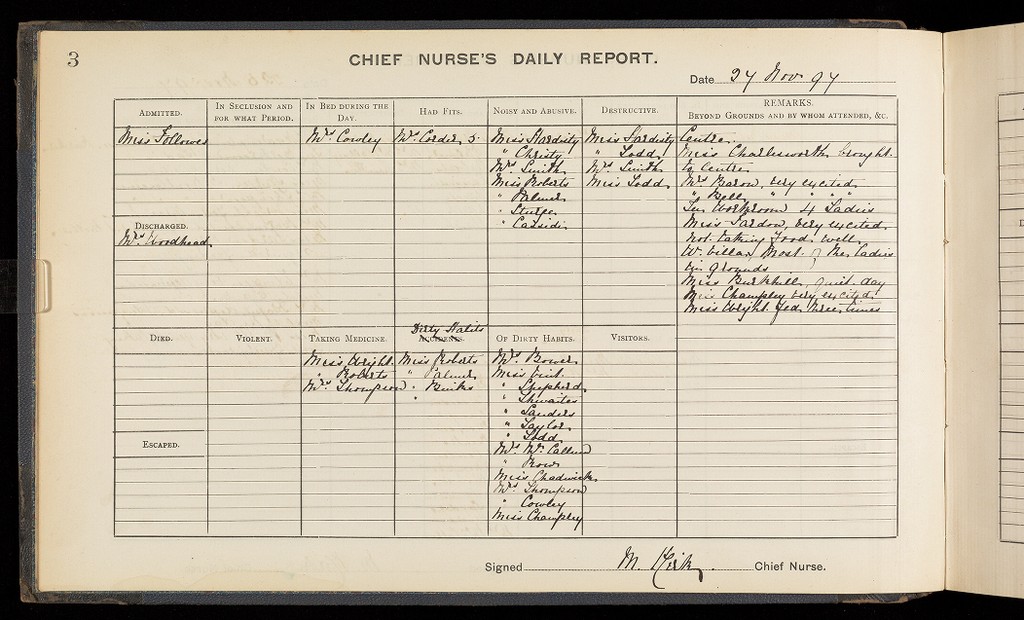 3
CHIEF NURSE'S DAILY REPORT.
Date 27 Nov 97
ADMITTED.
Miss Followes
DISCHARGED.
Mrs Woodhead
IN SECLUSION AND
FOR WHAT PERIOD.
IN BED DURING THE
DAY.
Mrs Cowley
HAD FITS.
Mr. Corder 5.
NOISY AND ABUSIVE.
Miss Hardisty
" Christy
Mrs Smith
Miss Roberts
" Palmer
" Sturge
" Cassidi
DESTRUCTIVE.
Miss Hardisty
" Todd
Mrs Smith
Miss Todd
REMARKS.
BEYOND GROUNDS AND BY WHOM ATTENDED, &C.
Centre.
Miss Charlesworth brought
to Centre
Mrs Baron, very excited
" Bell " " "
In Workroom 4 Ladies
Miss Pardow, very excited
not taking food well
W. Villa, Most of the Ladies
in grounds
Miss Burkhill, quiet day
Miss Champley very excited
Miss Wright fed three times
DIED.
ESCAPED.
VIOLENT.
TAKING MEDICINE.
Miss Wright
" Roberts
Mrs Thompson
Dirty Habits
ACCIDENTS.
Miss Roberts
" Palmer
" Binks
OF DIRTY HABITS.
Mrs Bower
Miss
" Shepherd
" Thwaites
" Sanders
" Taylor
" Todd
Mrs McCallum
" Rows
Miss Chadwick
Mrs Thompson
" Cowley
Miss Champley
VISITORS.
Signed M. Kirk. Chief Nurse.